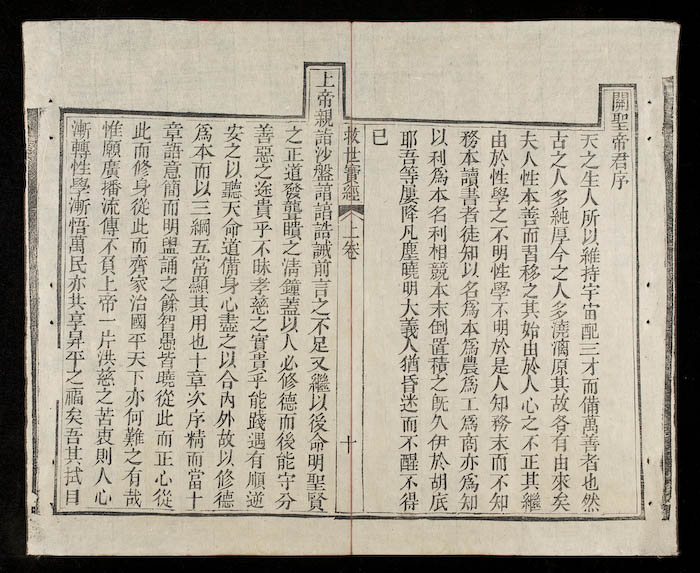 關聖帝君序
天之生人所以維持宇宙配三才而備萬善者也然
古之人多純厚今之人多澆漓原其故各有由來矣
夫人性本善而習移之其始由於人心之不正其繼
由於性學之不明性學不明於是人知務末而不知
務本讀書者徒知以名爲本爲農爲工爲商亦爲知
以利爲本名利相競本末倒置積之旣久伊於胡底
耶吾等屢降凡塵曉明大義人猶昏迷而不醒不得
已
救世寶經 上卷 十
上帝親詣沙盤諳諳誥誡前言之不足又繼以後命明聖賢
之正道發聾聵之清鐘蓋以人必修德而後能守分
善惡之途貴乎不昧孝慈之實貴乎能踐遇有順逆
安之以聽天命道備身心盡之以合內外故以修德
爲本而以三綱五常顯其用也十章次序精而當十
章語意簡而明盥誦之餘智愚皆曉從此而正心從
此而修身從此而齊家治國平天下亦何難之有哉
惟願廣播流傳不負上帝一片洪慈之苦衷則人心
漸轉性學漸悟萬民亦共享昇平之福矣吾其拭目